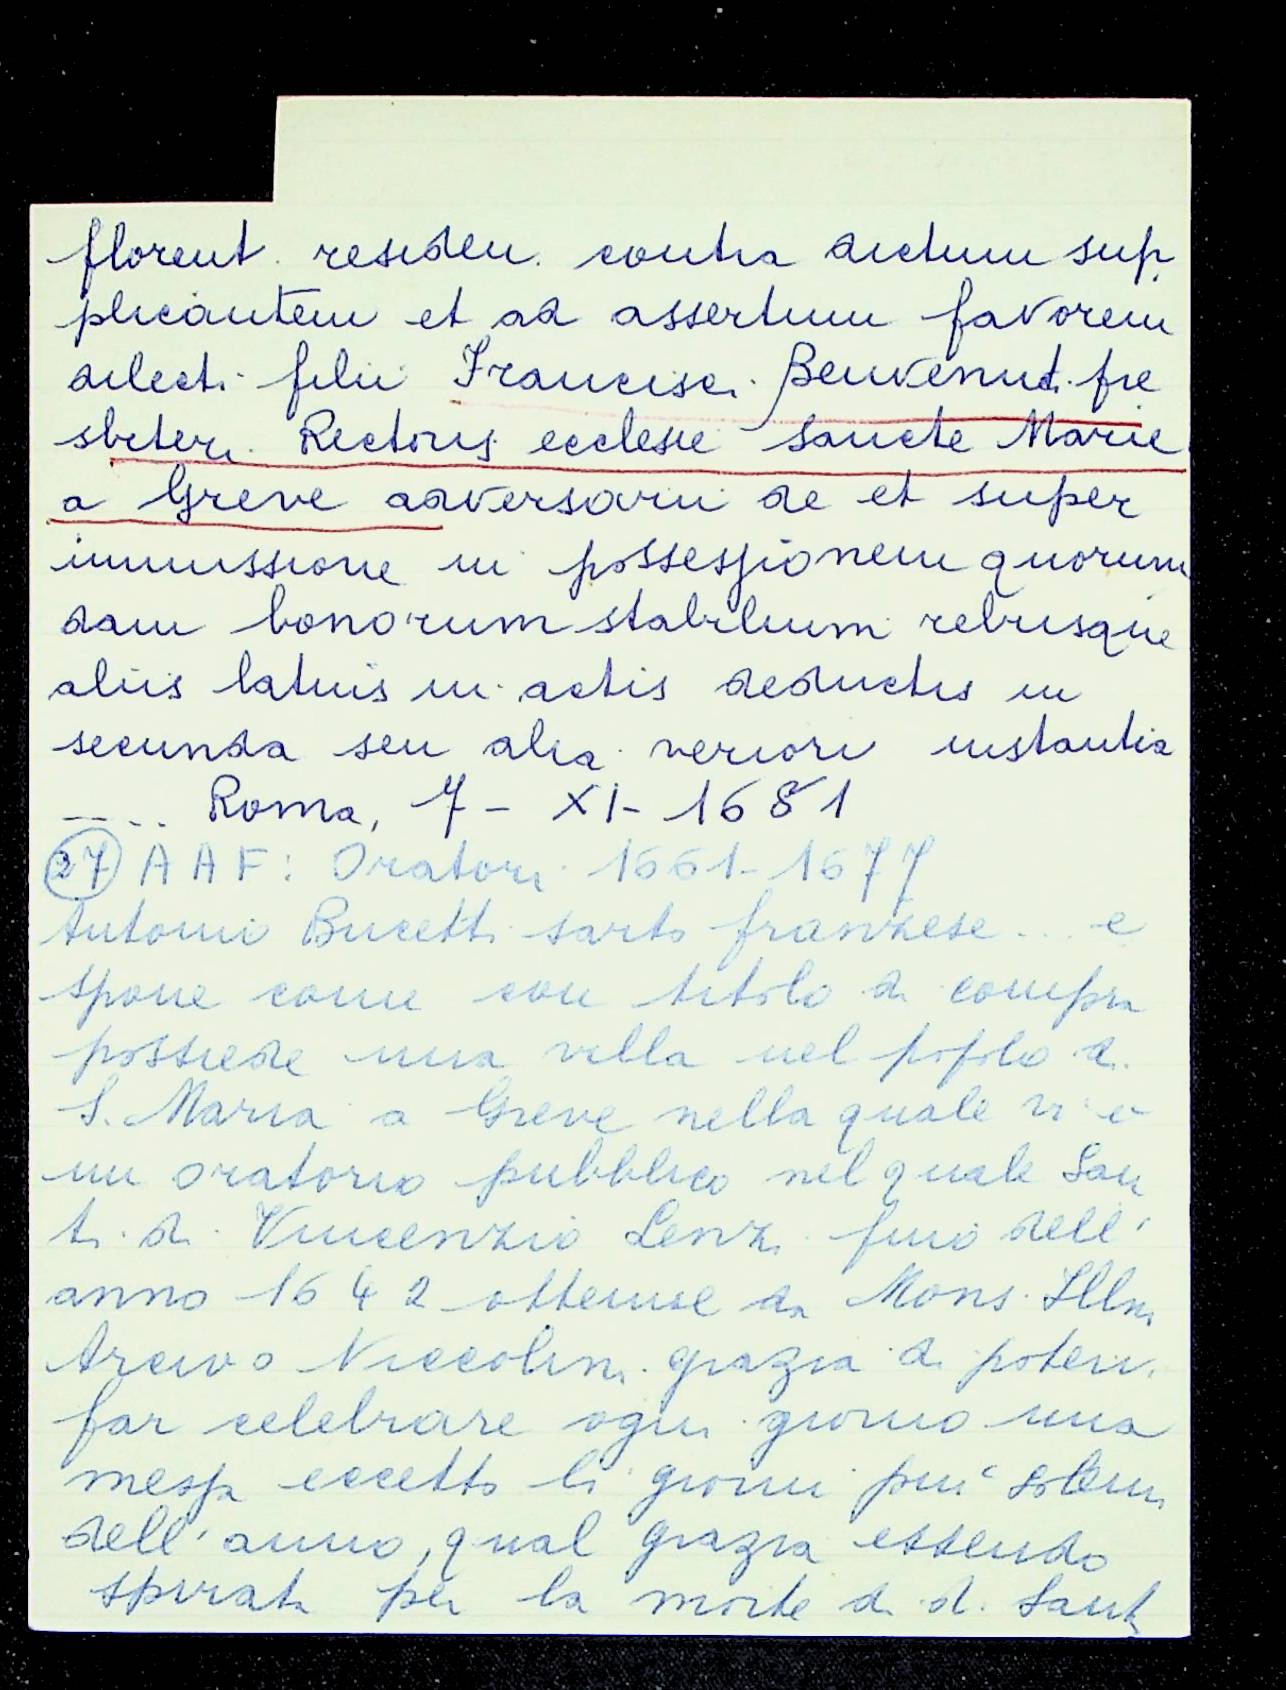 florent. residen. contra dictum sup
plicantem et ad assertum favorem
dilecti filii Francisci Benvenuti pre
sbiteri Rectoris ecclesie Sancte Marie
a Greve adversarii de et super
immissione in possessionem quorum
dam bonorum stabilium rebusque
aliis latius in actis deductis in
secunda seu alia veriori instantia
..... Roma, 7 - XI - 1681
(27) A A F: Oratori 1661-1677
Antonio Bucetti sarto franzese ... e
spone come con titolo di compra
possiede una villa nel popolo di
S. Maria a Greve nella quale vi è
un oratorio pubblico nel quale San
ti di Vincenzio Lenzi fino dell'
anno 1642 ottenne da Mons. Illm
Arcivo Niccolini grazia di poteri
far celebrare ogni giorno una
messa eccetto li giorni più solenni
dell'anno, qual grazia essendo
spirata per la morte di d. Santi